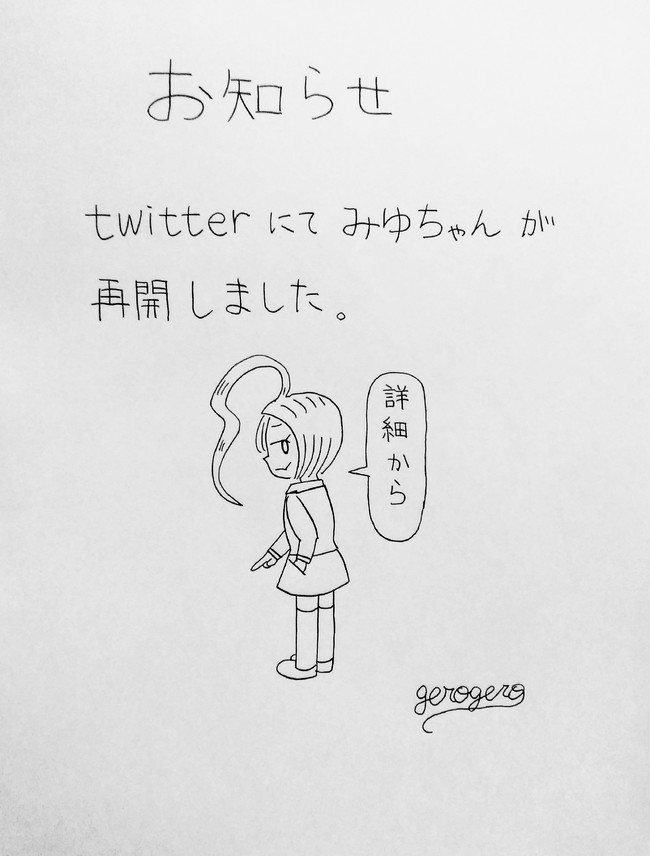 お知らせ
twitter にて みゆちゃん が
再開しました。
詳細から
gerogero